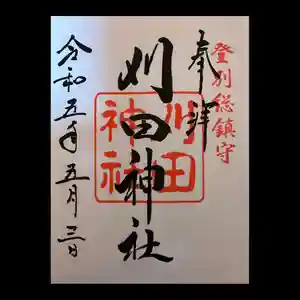 登別総鎮守
奉拝
刈田神社
刈田神社
令和五年五月三日